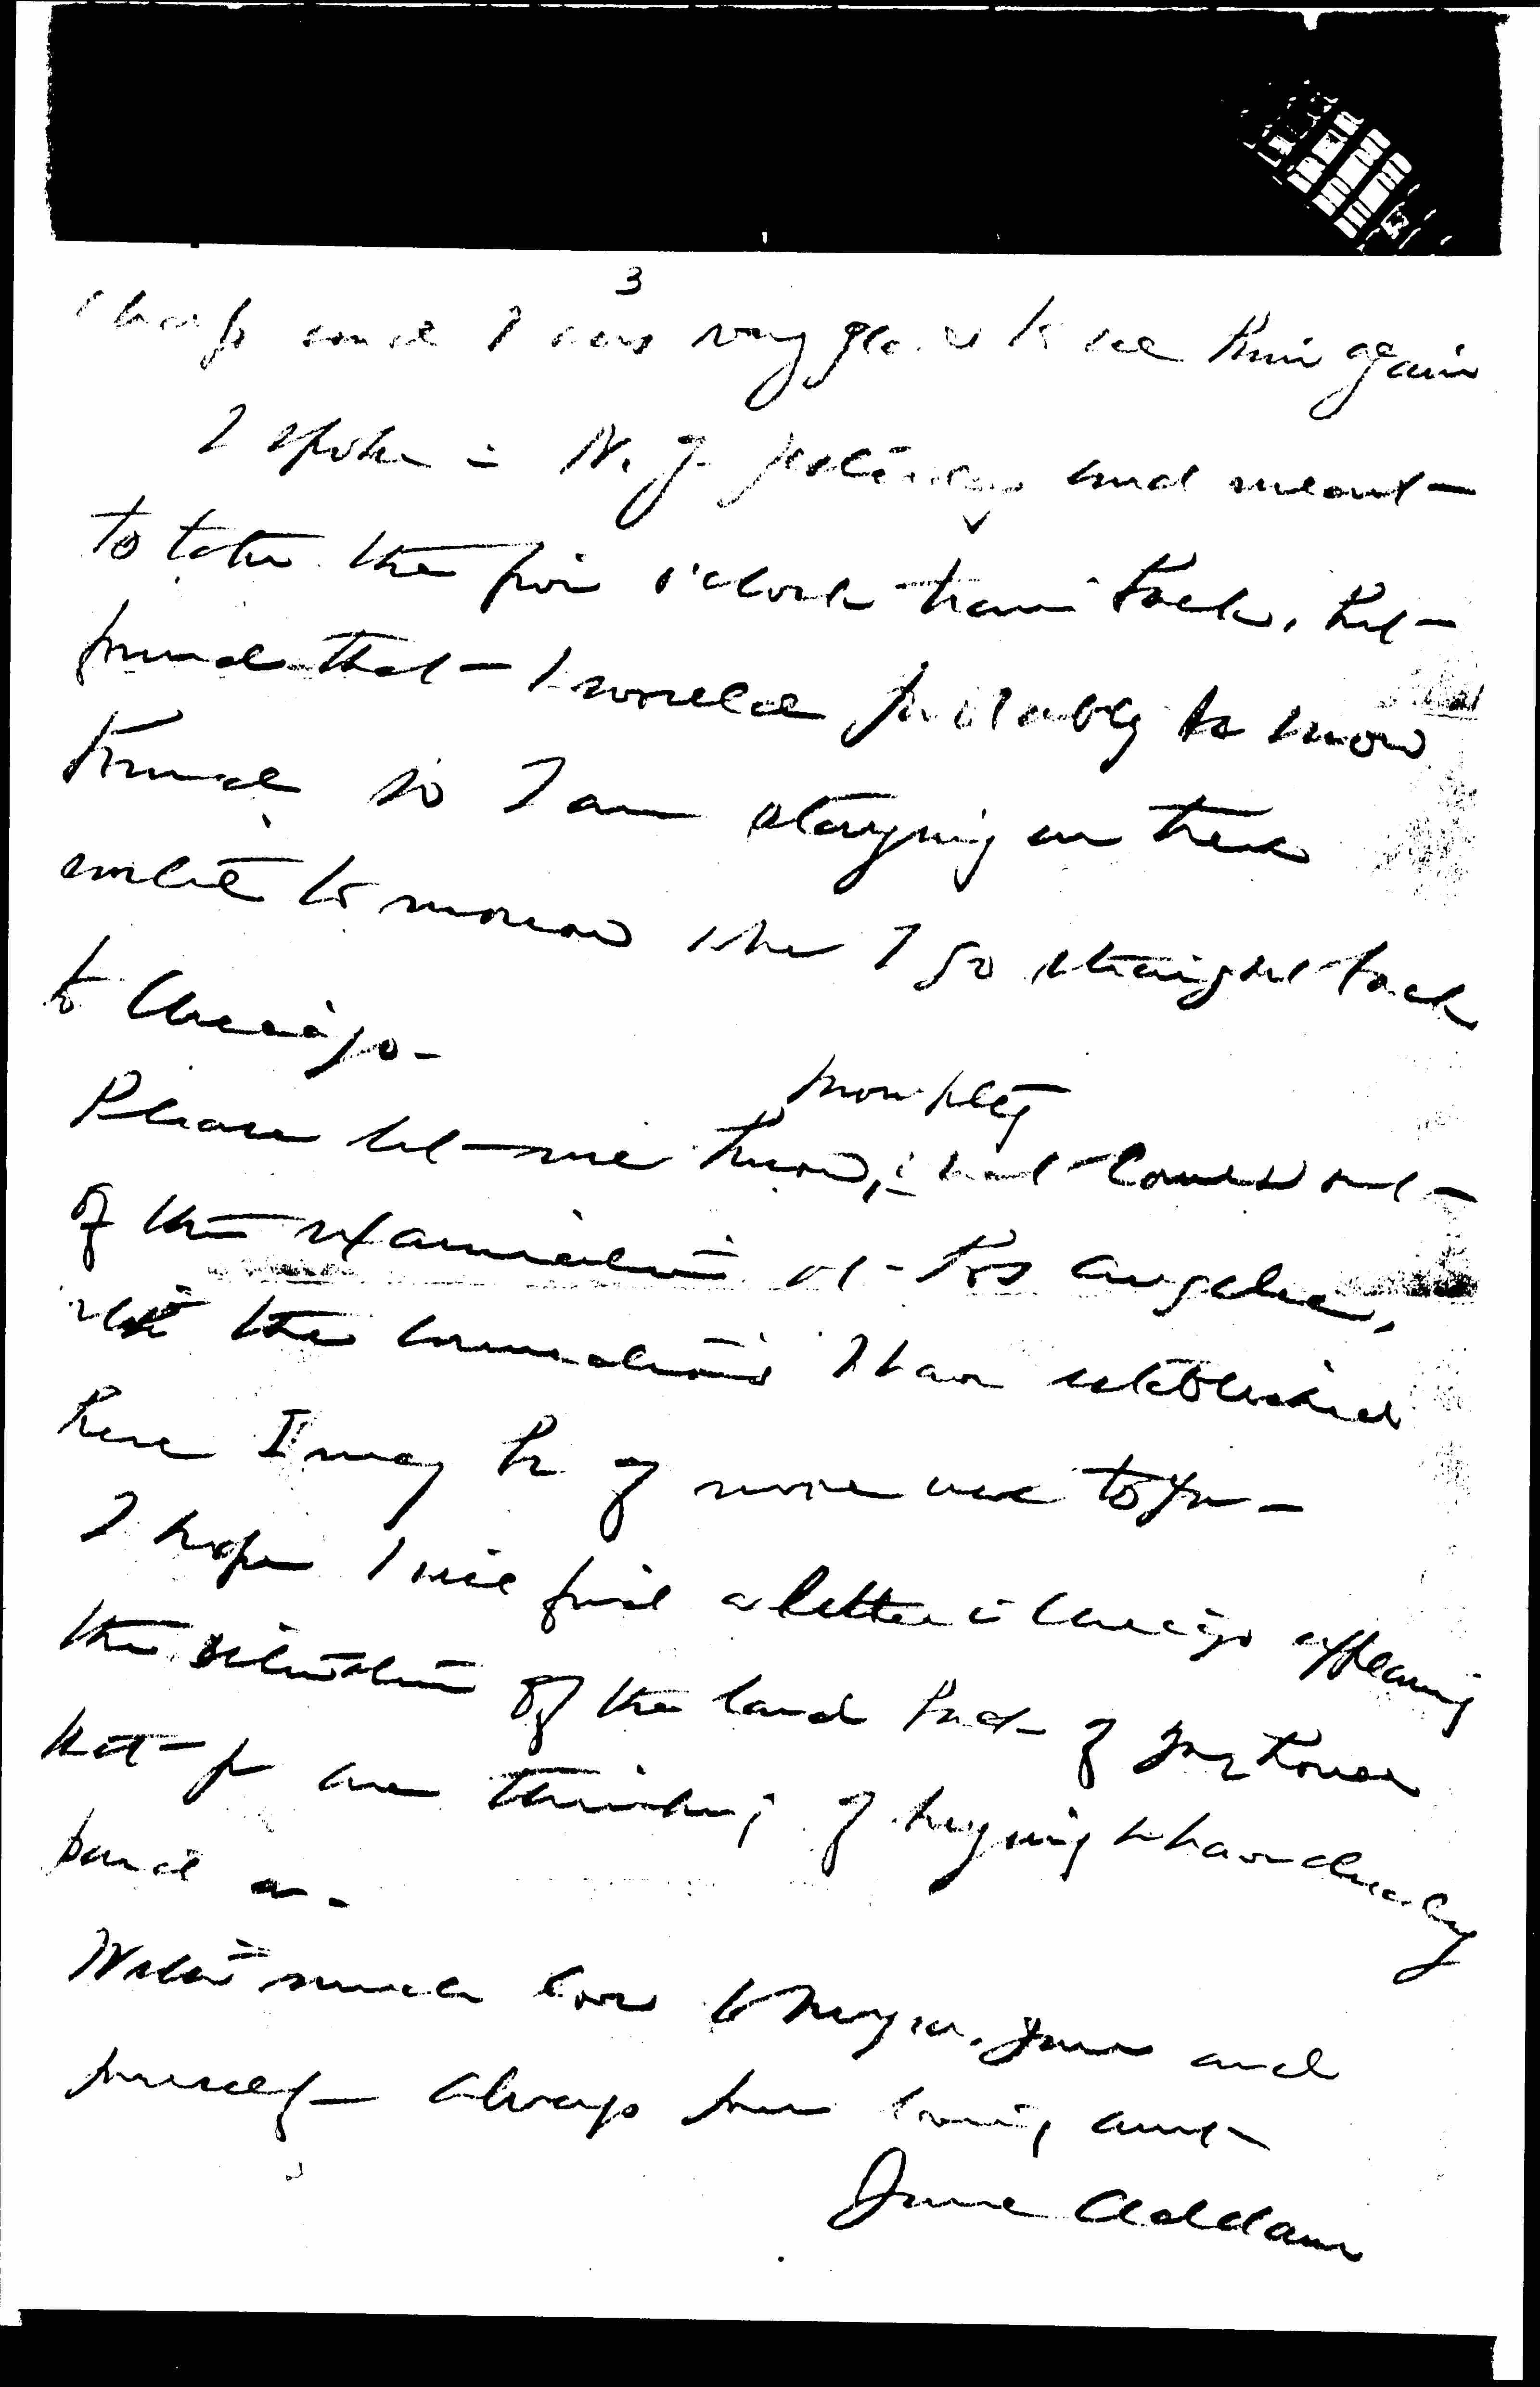 3
and I was very glad to see him again
I spoke in N.J. yesterday and meant
to take the five o'clock train back, but
found that I would probably be snow
bound so I am staying on here
until to morrow when I go straight back
to Chicago -
promptly
Please let me know, what comes out
of the examination at Los Angeles,
with the connections I have established
here I may be of some use to you -
I hope I will find a letter in Chicago
the situation of the land back of your house
that you are thinking of buying
With much love to Myra, Jane and
yourself - always your loving aunt
Jane Addams